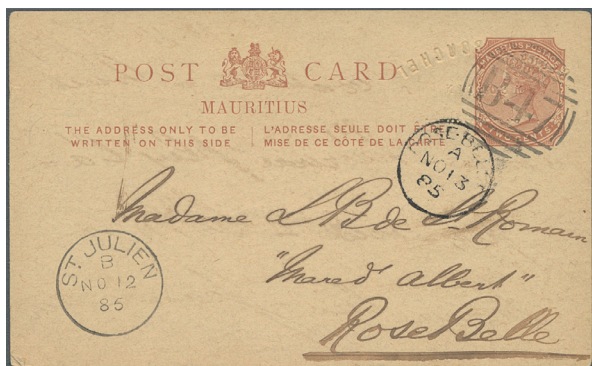 POST CARD
MAURITIUS
THE ADDRESS ONLY TO BE WRITTEN ON THIS SIDE
L'ADRESSE SEULE DOIT ÊTRE MISE DE CE CÔTÉ DE LA CARTE
TWO CENTS
ROSE-BELLE
A
NO 13
85
Madame L B de St Romain
"Mare d' Albert"
Rose Belle
ST JULIEN
B
NO 12
85